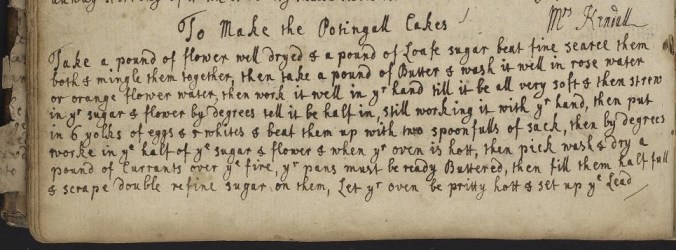 To Make the Potingall Cakes Mrs Kendall
Take a pound of flower well dryed & a pound of Loafe sugar beat fine searce them
both & mingle them together, then take a pound of Butter & wash it well in rose water
or orange flower water, then work it well in yr hand till it be all very soft & then strew
in yr sugar & flower by degrees tell it be half in, still working it with yr hand, then put
in 6 yolks of eggs & whites & beat them up with two spoonfulls of sack, then by degrees
worke in ye half of ye sugar & flower & when yr oven is hott, then pick wash & dry a
pound of Currants over ye fire, yr pans must be ready Buttered, then fill them half full
& scrape double refine sugar on them, Let yr oven be pritty hott & set up ye Lead